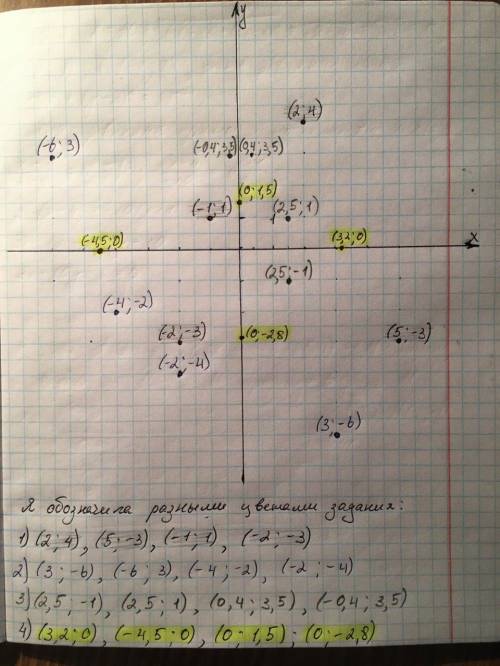 y
(2; 4)
(-6; 3)
(-0,4; 3,5) (0,4; 3,5)
(0; 1,5)
(-1; 1) (2,5; 1)
(-4,5; 0) (3,2; 0) x
(2,5; -1)
(-4; -2)
(-2; -3) (0; -2,8) (5; -3)
(-2; -4)
(3; -6)
Я обозначила разными цветами задания:
1) (2; 4), (5; -3), (-1; 1), (-2; -3)
2) (3; -6), (-6; 3), (-4; -2), (-2; -4)
3) (2,5; -1), (2,5; 1), (0,4; 3,5), (-0,4; 3,5)
4) (3,2; 0), (-4,5; 0), (0; 1,5); (0; -2,8)